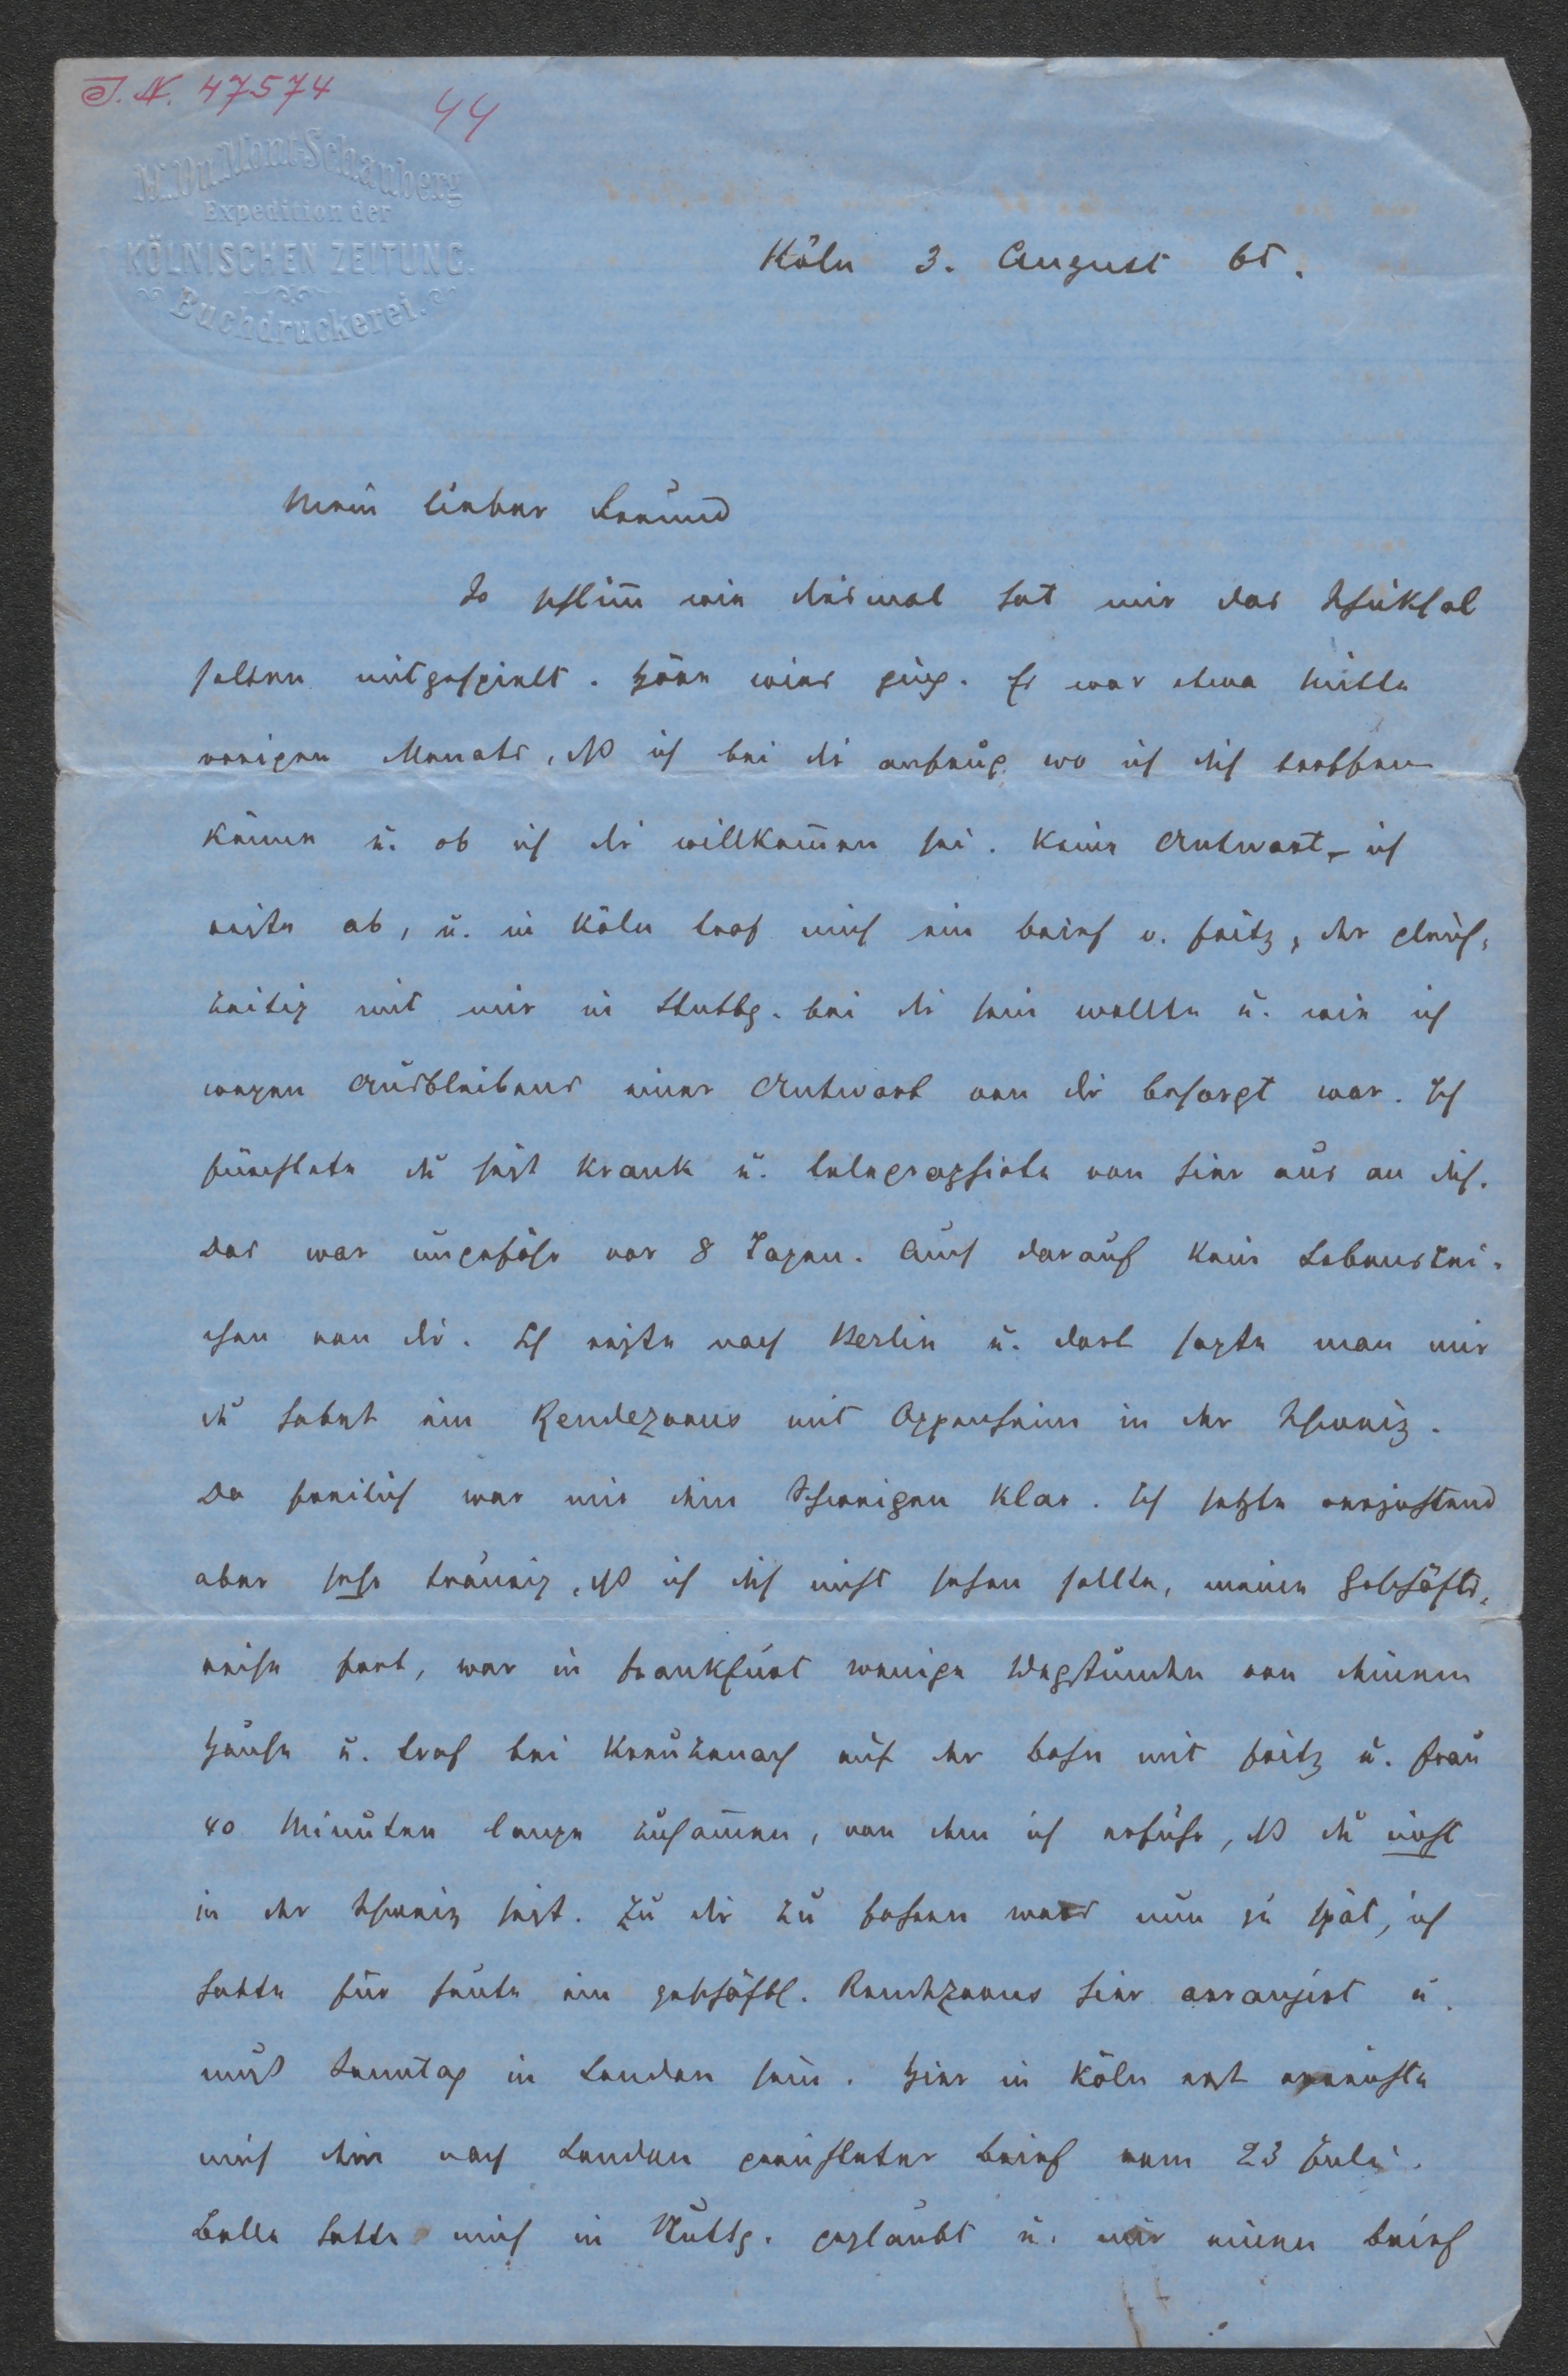 J. N. 47574
44
M. DuMont-Schauberg
Expedition der
KÖLNISCHEN ZEITUNG.
Buchdruckerei.
Köln 3. August 65.
Mein lieber Freund
So schlim̅ wie diesmal hat mir das Schiksal
selten mitgespielt. Höre wies ging. Es war etwa Mitte
vorigen Monats, dß ich bei dir anfrug wo ich dich treffen
könne u. ob ich dir willkom̅en sei. Keine Antwort – ich
reiste ab, u. in Köln traf mich ein Brief v. Fritz, der gleich-
zeitig mit mir in Stuttg. bei dir sein wollte u. wie ich
wegen Ausbleibens einer Antwort von dir besorgt war. Ich
fürchtete du seist krank u. telegraphirte von hier aus an dich.
Das war ungefähr vor 8 Tagen. Auch darauf kein Lebenszei-
chen von dir. Ich reiste nach Berlin u. dort sagte man mir
du habest ein Rendezvous mit Oppenheim in der Schweiz.
Da freilich war mir dein Schweigen klar. Ich setzte
aber sehr traurig, dß ich dich nicht sehen sollte, meine Geschäfts-
reise fort, war in Frankfurt wenige Wegstunden von deinem
Hause u. traf bei Kreuznach auf der Bahn mit Fritz u. Frau
40 Minuten lange zusam̅en, von dem ich erfuhr, dß du nicht
in der Schweiz seist. Zu dir zu fahren wars nun zu spät, ich
hatte für heute ein geschäftl. Rendezvous hier arrangirt u.
muß Sonntag in London sein. Hier in Köln erst erreichte
mich dein nach London gerichteter Brief vom 23 Juli.
Belle hatte mich in Stuttg. geglaubt u. mir einen Brief